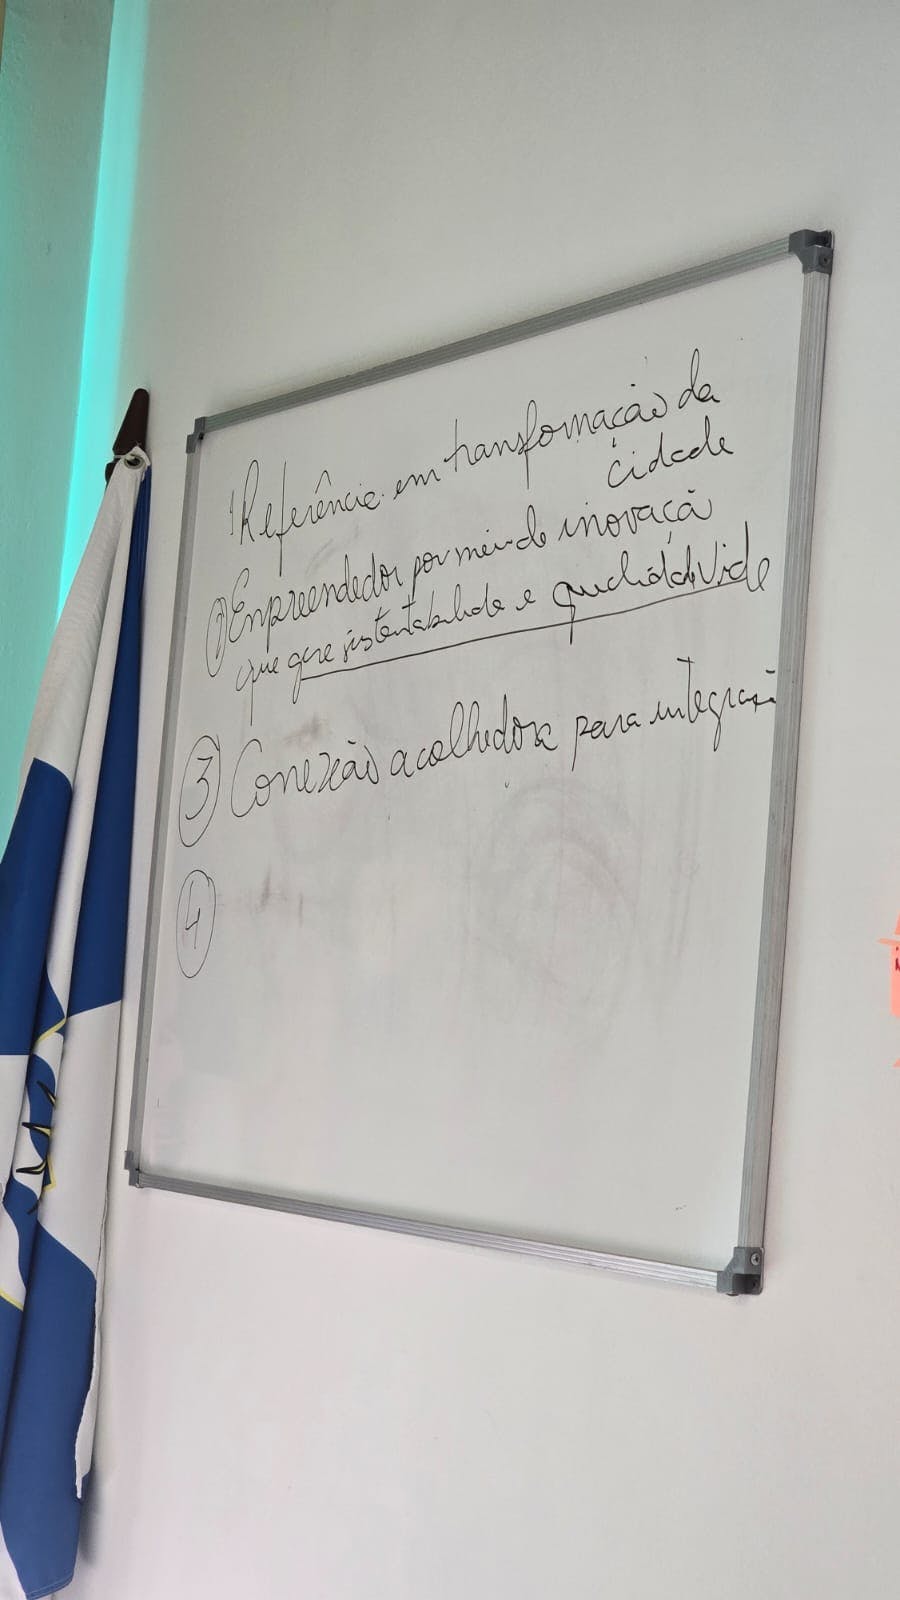 1 Referência em transformação da
cidade
② Empreendedor por meio de inovaçã
que gere sustentabilidade e qualidade Vida
③ Conexão acolhedora para integração
④